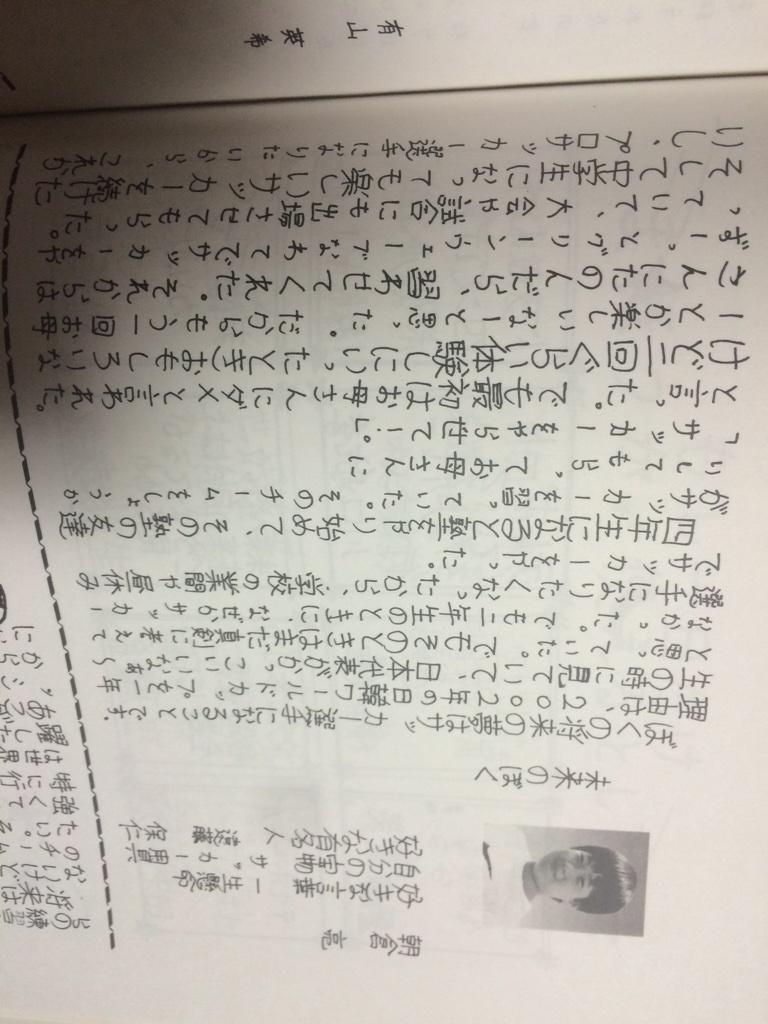 朝倉 亮
好きな言葉 一生懸命
自分の宝物 サッカー用具
好きな有名人 遠藤 保仁
未来のぼく
ぼくの将来の夢はサッカー選手になることです。
理由は、2002年の日韓ワールドカップを一年
生の時に見ていて、日本代表がかっこいいなぁ〜
と思っていた。でもそのときはまだ真剣に考えて
なかった。でも二年生のときに、なぜかサッカー
選手になりたくなった。だから、学校の業間や昼休み
でサッカーをやった。
四年生になると塾をやり始めて、その塾の友達
がサッカーを習っていた。そのチームをしょうか
いしてもらって、お母さんに
「サッカーをやらせてー!」。
と言った。でも最初はお母さんにダメと言われた。
けど二回ぐらい体験しにいったときおもしろいな
ーとか楽しいなーと思った。だからもう一回お母
さんにたのんだら、習わせてくれた。それからは
ずーっとグリーンウェーブなわてでサッカーをや
っていて、大会や試合にも出場させてもらった。
そして中学生になっても楽しいサッカーを続けた
いし、プロサッカー選手になりたいから、これか
らの練習
将来は
なけど
のチーム
たい。そ
強くて
特に行
は世界
躍した
から
に
有山 英希